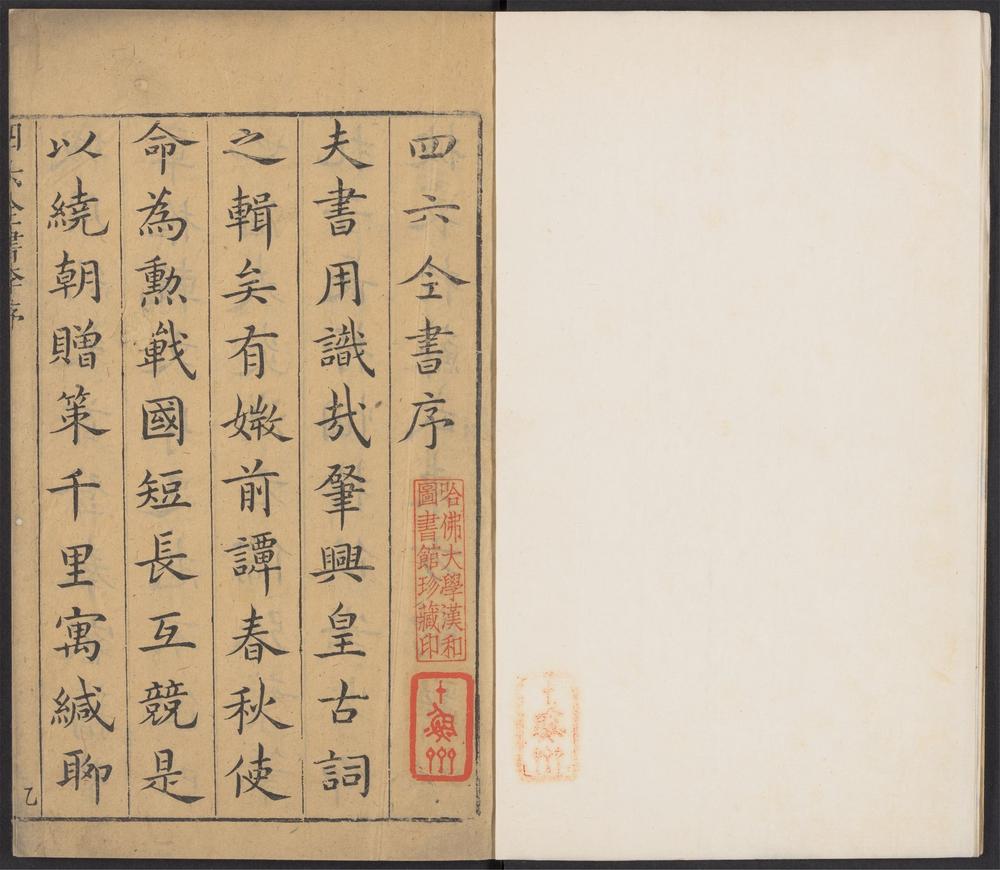 四六全書序
夫書用識哉肇興皇古詞
之輯矣有媺前譚春秋使
命為勳戰國短長互競是
以繞朝贈策千里寓緘聊
四六全書序
乙
哈佛大學漢和
圖書館珍藏印